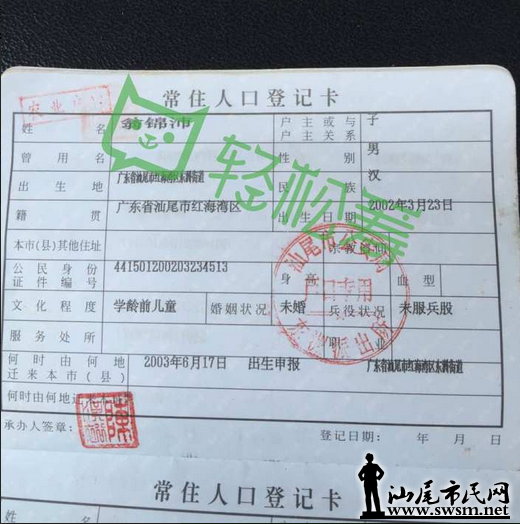 农业家庭户
常住人口登记卡
姓名 翁锦沛 户主或与户主关系 子
曾用名 性别 男
出生地 广东省汕尾市红海湾区东洲街道 民族 汉
籍贯 广东省汕尾市红海湾区 出生日期 2002年3月23日
本市(县)其他住址 宗教信仰
公民身份证件编号 441501200203234513 身高 血型
文化程度 学龄前儿童 婚姻状况 未婚 兵役状况 未服兵股
服务处所 职业
何时由何地迁来本市(县) 2003年6月17日 出生申报 广东省汕尾市红海湾区东洲街道
何时由何地迁来本址
承办人签章: 登记日期: 年 月 日
轻松筹
常住人口登记卡
姓名 户主或与
汕尾市民网
www.swsm.net